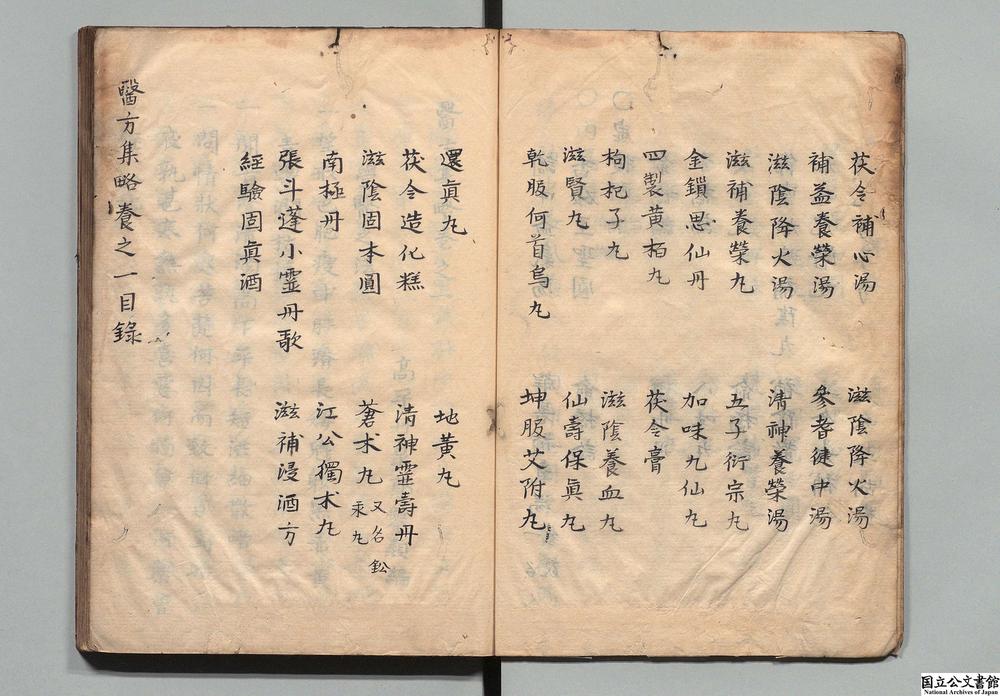 茯令補心湯　滋陰降火湯
補益養榮湯　參耆健中湯
滋陰降火湯　清神養榮湯
滋補養榮丸　五子衍宗丸
金鎖思仙丹　加味九仙丸
四製黄栢丸　茯令膏
枸杞子丸　滋陰養血丸
滋賢丸　仙壽保眞丸
乾服何首烏丸　坤服艾附丸
還眞丸　地黄丸
茯令造化糕　清神靈壽丹
滋陰固本圓　蒼术丸 又名 乘丸
南極丹　江公獨术丸
張斗蓬小靈丹歌　滋補浸酒方
經驗固眞酒
醫方集略養之一目錄
国立公文書館
National Archives of Japan